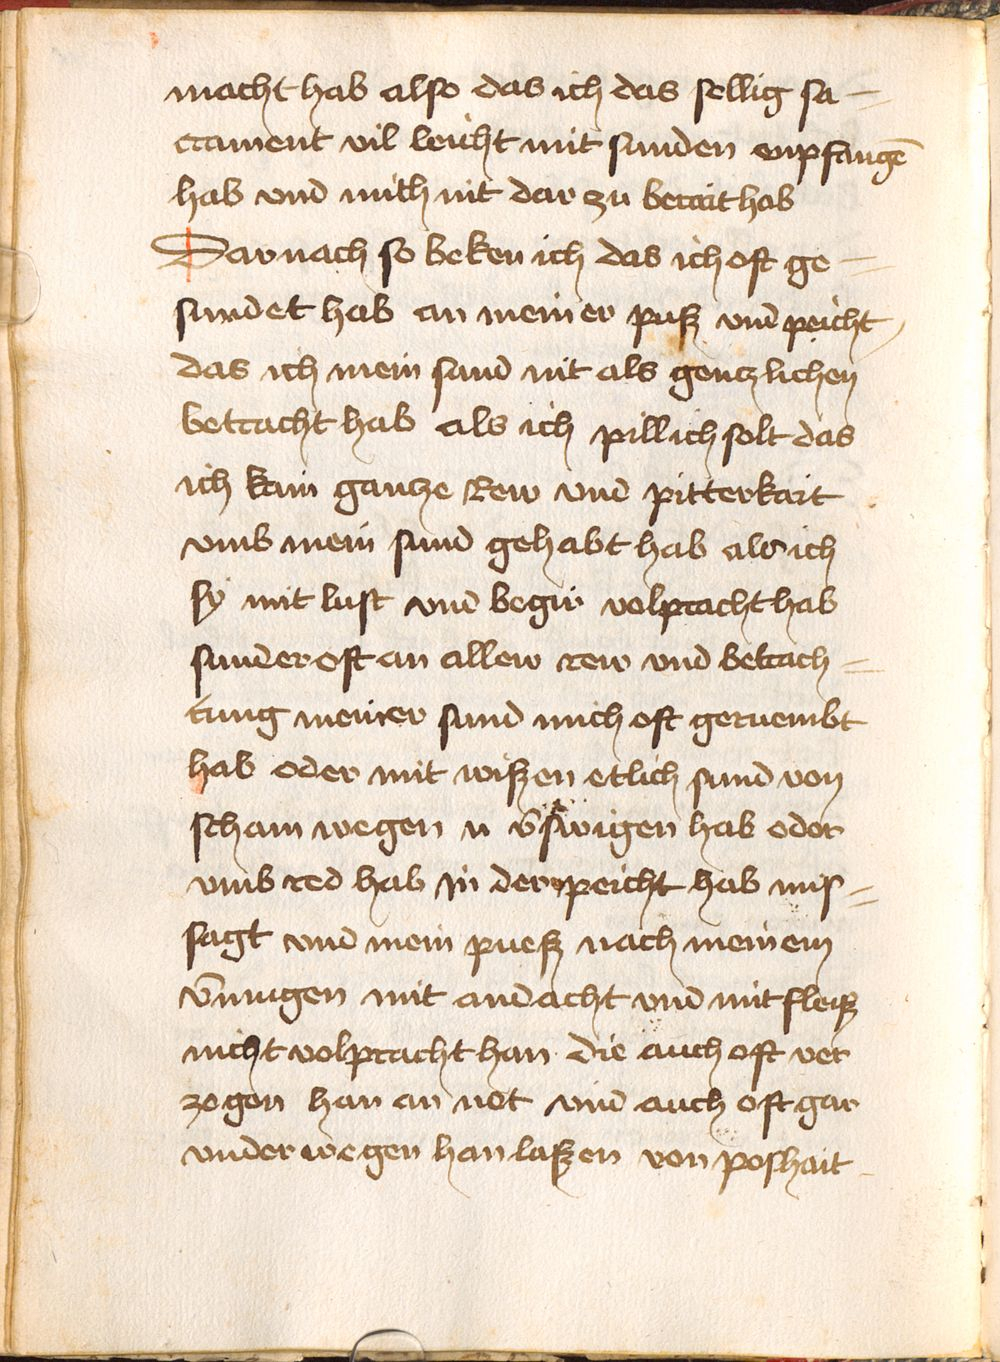 macht hab also das ich das sellig sa=
crament vil leicht mit sunden enpfangē
hab vnd mich nit dar zu berait hab
Darnach so beken ich das ich oft ge=
sundet hab an meiner puß vnd peicht
das ich mein sund nit als genczlichen
betracht hab als ich pillich solt das
ich kain gantze Rew vnd pitterkait
vmb mein sund gehabt hab als ich
sÿ mit lust vnd begir volpracht hab
sunder oft an allew rew vnd betrach=
tung meiner sund mich oft geruembt
hab oder mit wißen etlich sund von
scham wegen v̄swigen hab oder
vmb red hab in der peicht hab mis=
sagt vnd mein pueß nach meinem
v̄mugen mit andacht vnd mit fleiß
nicht volpracht han die auch oft ver
zogen han an not vnd auch oft gar
vnder wegen han laßen von poshait